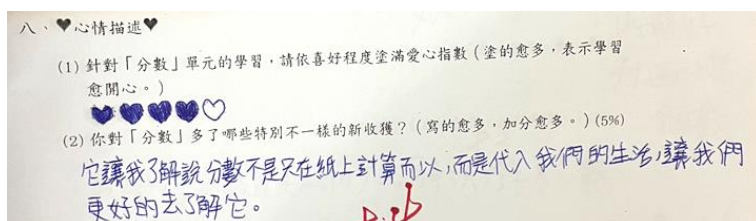 八、♥心情描述♥
(1) 針對「分數」單元的學習，請依喜好程度塗滿愛心指數（塗的愈多，表示學習
愈開心。）
♥♥♥♥♡
(2) 你對「分數」多了哪些特別不一樣的新收獲？（寫的愈多，加分愈多。）(5%)
它讓我了解說分數不是只在紙上計算而以，而是代入我們的生活，讓我們
更好的去了解它。